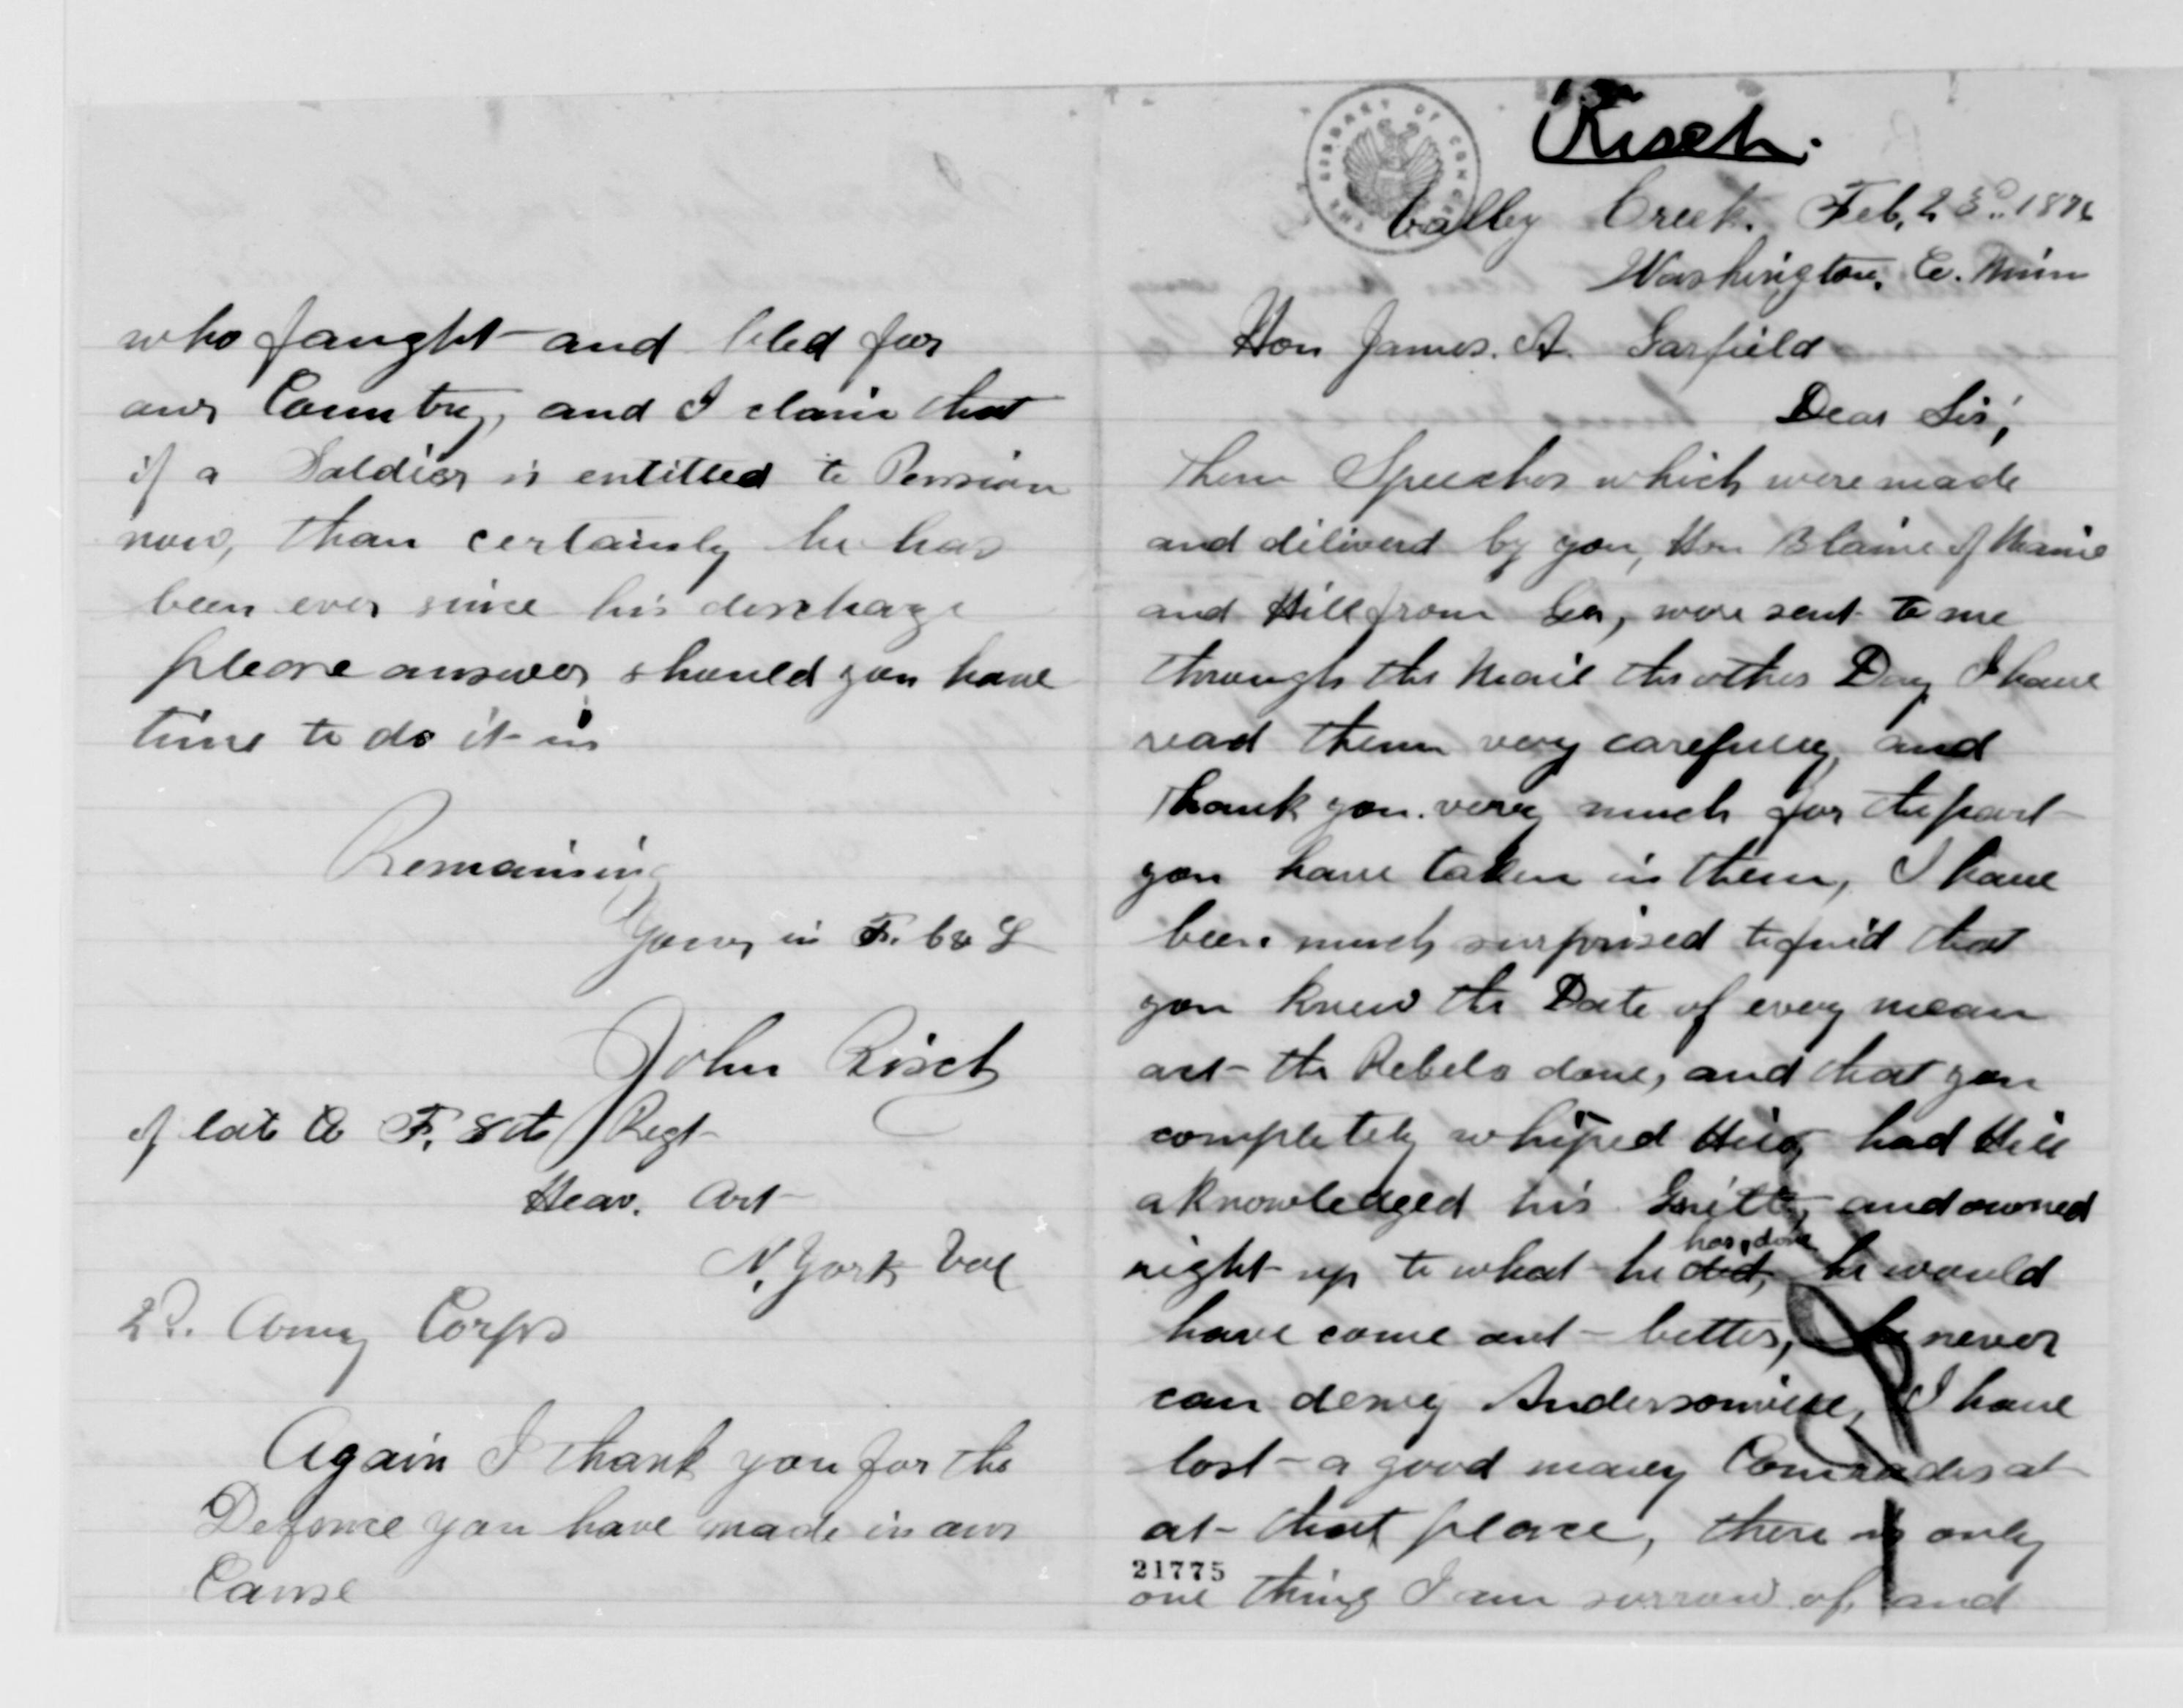 Risch.
THE LIBRARY OF CONGRESS
Valley Creek. Feb, 23d.. 1876
Washington, Co. Minn
Hon James. A. Garfield
Dear Sir,
Them Speeches which were made
and diliverd by you, Hon Blaine of Maine
and Hill from Ga, were sent to me
through the Mail the other Day I have
read them very carefully, and
thank you very much for the part
you have taken in them, I have
been much surprised to find that
you knew the Date of every mean
act the Rebels done, and that you
completely whiped Hill, had Hill
aknowledged his Guilt, and owned
right up to what he did, has done he would
have come out better, he never
can deney Andersonville, I have
lost a good many Comrades at
at that place, there is only
21775
one thing I am sorrow of, and
who faught and bled for
our Country, and I claim that
if a Soldier is entitled to Pension
now, than certainly he has
been ever since his discharge
please answer should you have
time to do it in
Remaining
Yours in F. C & L
John Risch
of late Co F, 8th Regt
Heav. Art
N, York Vol
2d. Army Corps
Again I thank you for the
Defence you have made in our
Cause